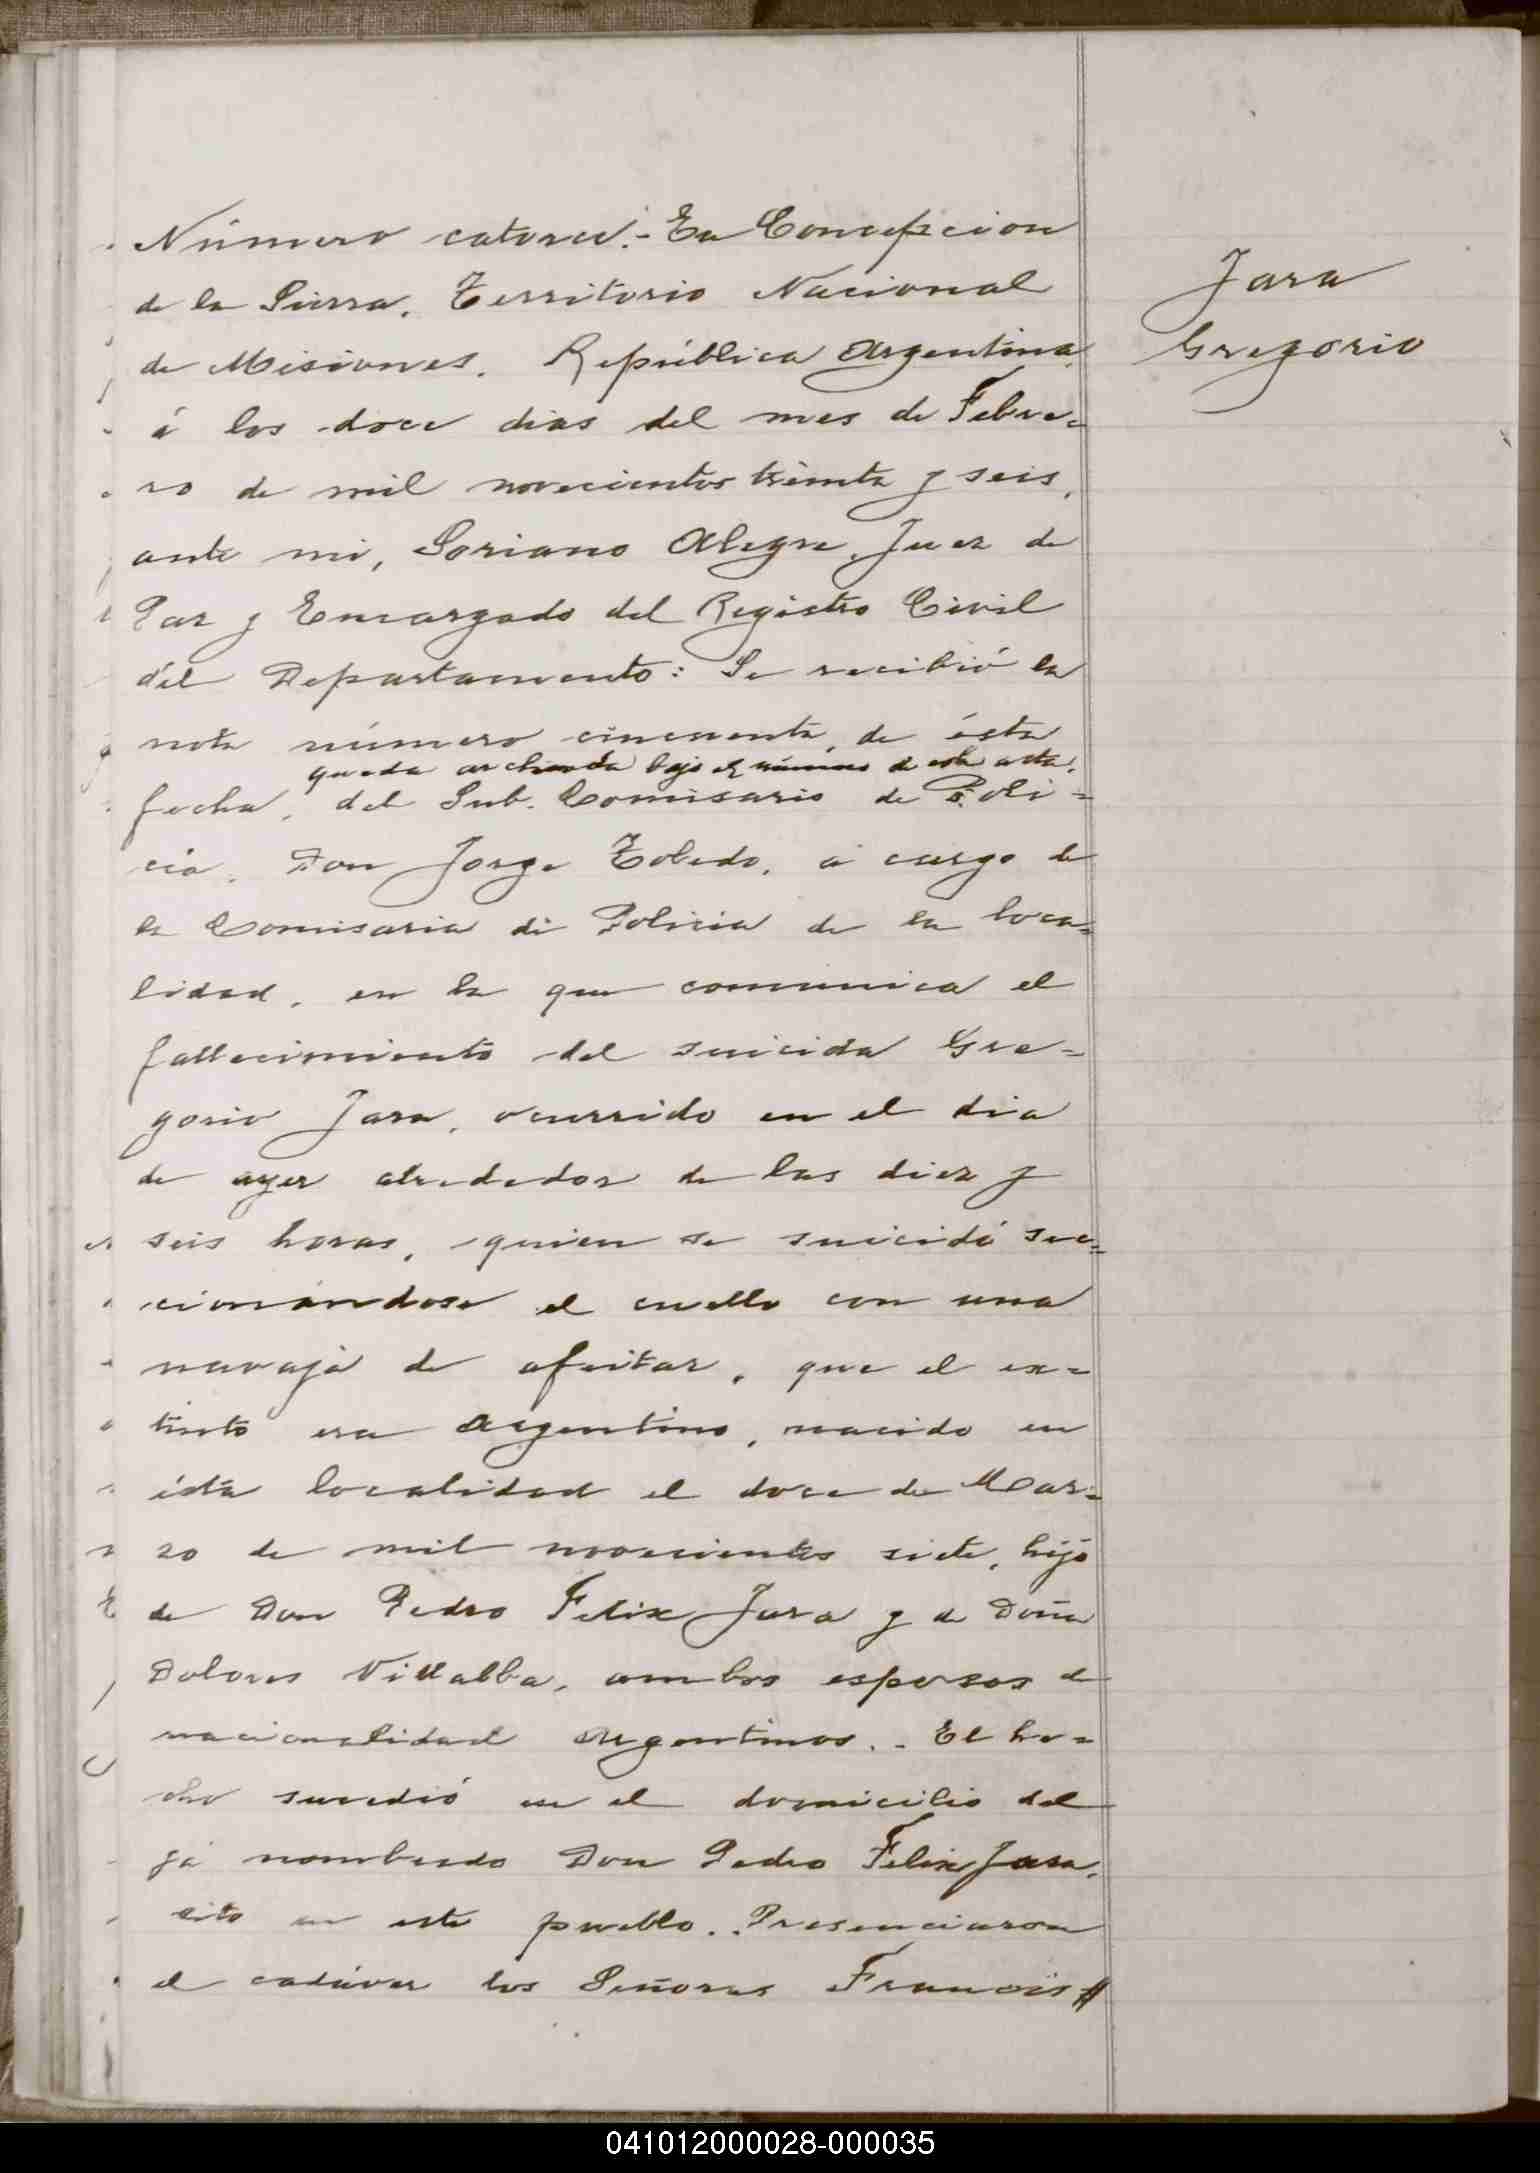 Número catorce.- En Concepcion
de la Sierra, Territorio Nacional
de Misiones, República Argentina,
á los doce dias del mes de Febre=
ro de mil novecientos treinta y seis,
ante mi, Soriano Alegre, Juez de
Paz y Encargado del Registro Civil
del Departamento: Se recibió la
nota número cincuenta, de ésta
queda archivada bajo el número de esta acta.
fecha, del Sub. Comisario de Poli=
cia, Don Jorge Toledo, á cargo de
la Comisaria de Policia de la loca=
lidad, en la que comunica el
fallecimiento del suicida Gre=
gorio Jara, ocurrido en el dia
de ayer alrededor de las diez y
seis horas, quien se suicidó sec=
cionándose el cuello con una
navaja de afeitar, que el ex=
tinto era Argentino, nacido en
ésta localidad el doce de Mar=
zo de mil novecientos siete, hijo
de Don Pedro Felix Jara y de Doña
Dolores Villalba, ambos esposos de
nacionalidad Argentinos.- El he=
cho sucedió en el domicilio del
ya nombrado Don Pedro Felix Jara,
sito en este pueblo. Presenciaron
el cadáver los Señores Francis//
Jara
Gregorio
041012000028-000035